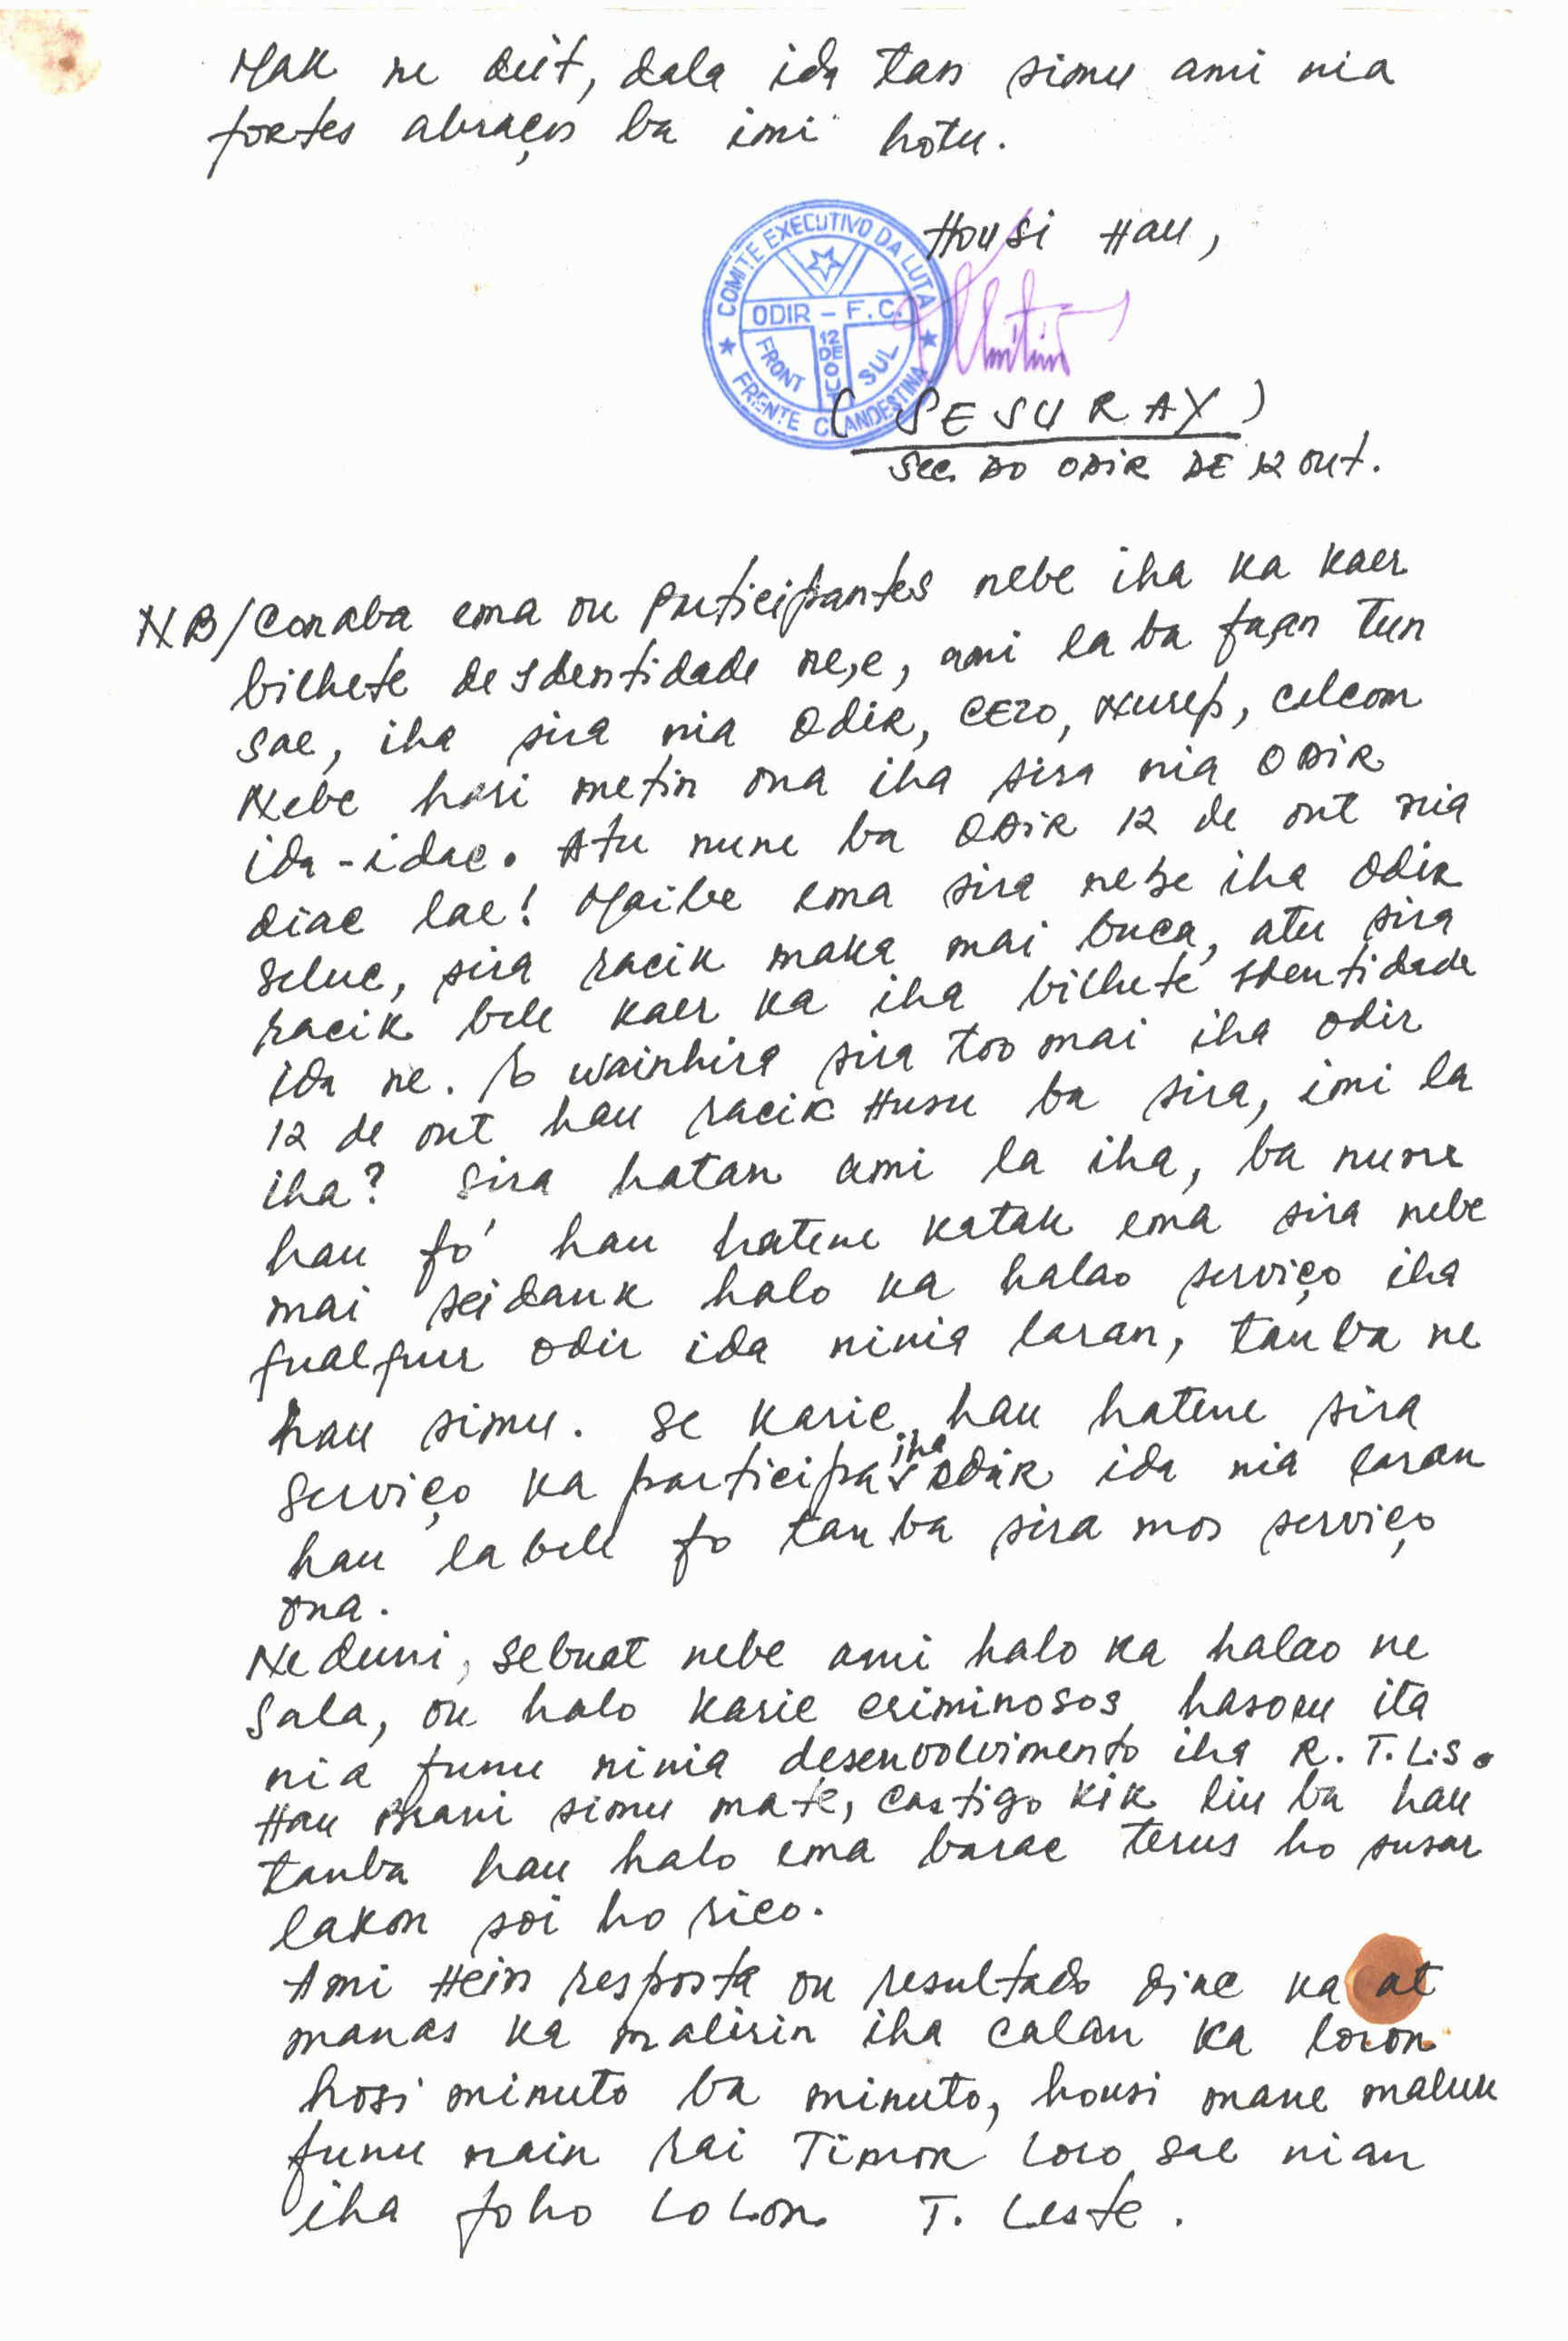 Mak ne deit, dala ida tan simu ami nia
fortes abraços ba imi hotu.
Housi Hau,
COMITE EXECUTIVO DA LUTA
ODIR - F.C.
FRONT 12 DE OUT SUL
FRENTE CLANDESTINA
(SESURAY)
Sec. DO ODIR DE 12 out.
NB/Conaba ema ou participantes nebe iha ka kaer
bilhete de Identidade ne,e, ami la ba faan tun
sae, iha sira nia Odir, CEZO, Nurep, celcom
Nebe hari metin ona iha sira nia ODIR
ida-idac. Atu nune ba ODIR 12 de out nia
diac lae! Maibe ema sira nebe iha Odir
seluc, sira racik maka mai buca, atu sira
racik bele kaer ka iha bilhete Identidade
ida ne. To wainhira sira too mai iha odir
12 de out hau racik Husu ba sira, imi la
iha? Sira hatan ami la iha, ba nune
hau fó hau hatene katak ema sira nebe
mai seidauk halo ka halao serviço iha
qualquer odir ida ninia laran, tanba ne
hau simu. Se karic hau hatene sira
serviço ka participa iha Odir ida nia laran
hau la bele fo tanba sira mos serviço
ona.
Ne duni, sebuat nebe ami halo ka halao ne
Sala, ou halo karic criminosos hasoru ita
nia funu ninia desenvolvimento iha R.T.L.S.
Hau Brani simu mate, castigo kik liu ba hau
tanba hau halo ema barac terus ho susar
lakon soi ho rico.
Ami Hein resposta ou resultado diac ka at
manas ka malirin iha calan ka loron
hosi minuto ba minuto, housi mane maluk
funu nain rai Timor Loro sae nian
iha foho Lolon T. Leste.